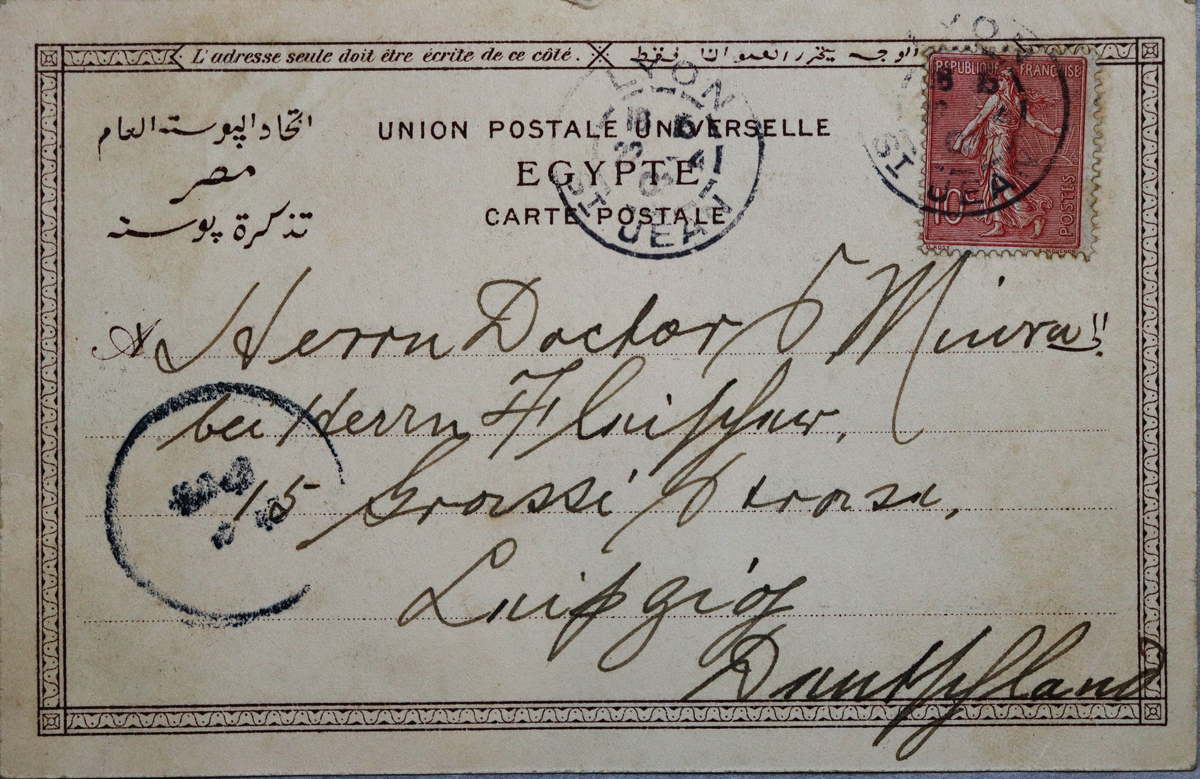 L'adresse seule doit être écrite de ce côté.
الوجه يحرر العنوان فقط
اتحاد البوسته العام
مصر
تذكرة بوسته
UNION POSTALE UNIVERSELLE
EGYPTE
CARTE POSTALE
LYON
ST JEAN
REPUBLIQUE FRANÇAISE
10
POSTES
ST JEAN
Herrn Doctor Miura!!
bei Herrn Fleischer,
15 Grassi Strasse,
Leipzig
Deutschland